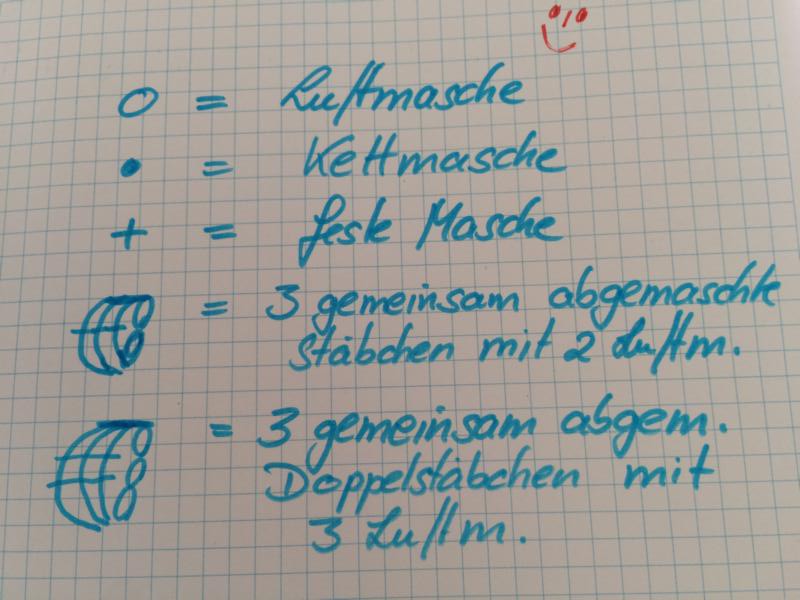 O = Luftmasche
• = Kettmasche
+ = feste Masche
= 3 gemeinsam abgemaschte
Stäbchen mit 2 Luftm.
= 3 gemeinsam abgem.
Doppelstäbchen mit
3 Luftm.